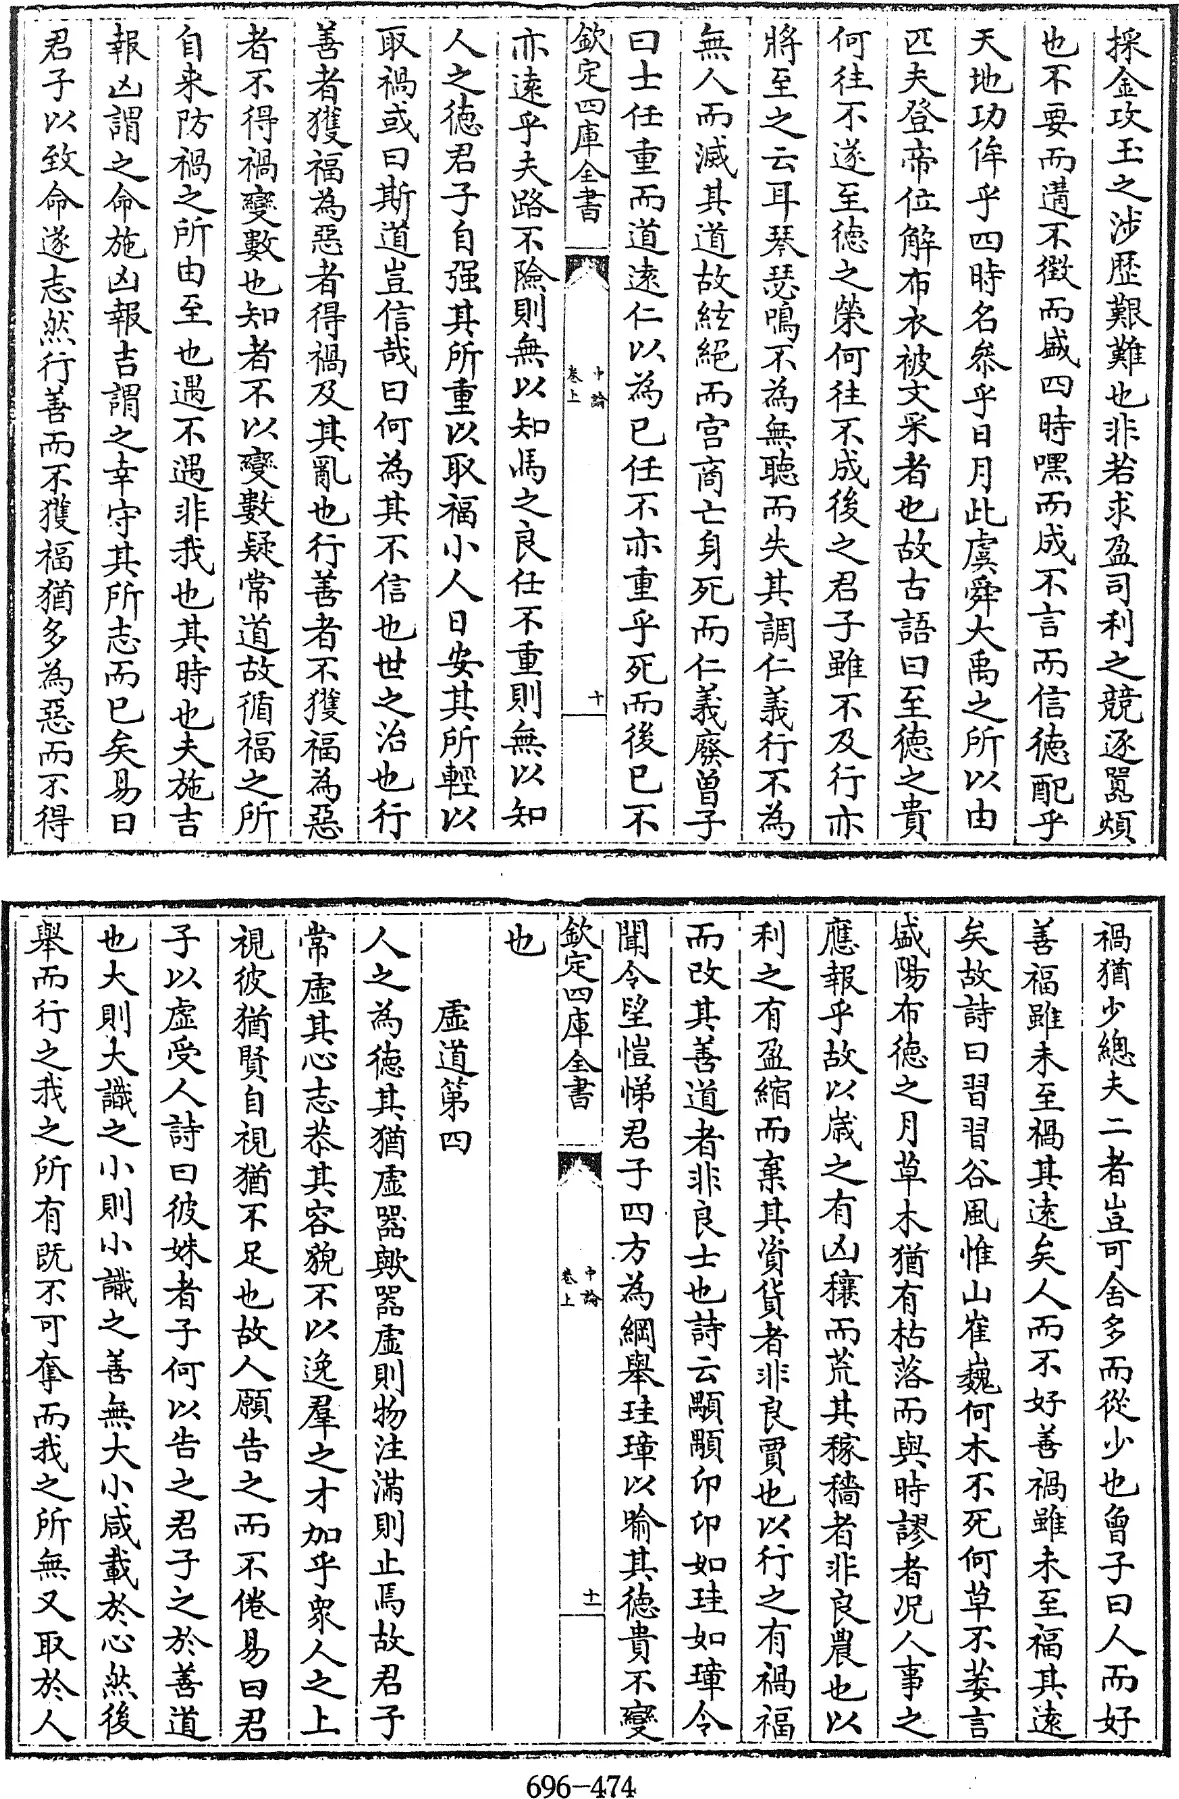 採金攻玉之涉歴艱難也非若求盈司利之競逐嚣煩
也不要而遘不徴而盛四時嘿而成不言而信徳配乎
天地功侔乎四時名叅乎日月此虞舜大禹之所以由
匹夫登帝位解布衣被文采者也故古語曰至徳之貴
何往不遂至徳之榮何往不成後之君子雖不及行亦
將至之云耳琴瑟鳴不為無聽而失其調仁義行不為
無人而滅其道故絃絕而宫商亡身死而仁義廢曽子
曰士任重而道逺仁以為已任不亦重乎死而後已不
欽定四庫全書
中論
卷上
十
亦逺乎夫路不險則無以知馬之良任不重則無以知
人之徳君子自强其所重以取福小人日安其所輕以
取禍或曰斯道豈信哉曰何為其不信也世之治也行
善者獲福為惡者得禍及其亂也行善者不獲福為惡
者不得禍變數也知者不以變數疑常道故循福之所
自来防禍之所由至也遇不遇非我也其時也夫施吉
報凶謂之命施凶報吉謂之幸守其所志而已矣易曰
君子以致命遂志然行善而不獲福猶多為惡而不得
禍猶少總夫二者豈可舍多而從少也曽子曰人而好
善福雖未至禍其逺矣人而不好善禍雖未至福其逺
矣故詩曰習習谷風惟山崔巍何木不死何草不萎言
盛陽布徳之月草木猶有枯落而與時謬者况人事之
應報乎故以歳之有凶穰而荒其稼穡者非良農也以
利之有盈縮而棄其資貨者非良賈也以行之有禍福
而改其善道者非良士也詩云顒顒卬卬如珪如璋令
聞令望愷悌君子四方為綱舉珪璋以喻其徳貴不變
欽定四庫全書
中論
卷上
十一
也
虚道第四
人之為徳其猶虚器歟器虚則物注滿則止焉故君子
常虚其心志恭其容貌不以逸羣之才加乎衆人之上
視彼猶賢自視猶不足也故人願告之而不倦易曰君
子以虚受人詩曰彼姝者子何以告之君子之於善道
也大則大識之小則小識之善無大小咸載於心然後
舉而行之我之所有既不可奪而我之所無又取於人
696-474